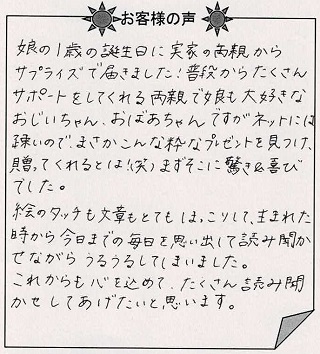 お客様の声
娘の1歳の誕生日に実家の両親から
サプライズで届きました!普段からたくさん
サポートをしてくれる両親で娘も大好きな
おじいちゃん、おばあちゃんですがネットには
疎いので、まさかこんな粋なプレゼントを見つけ、
贈ってくれるとは!(笑)まずそこに驚き&喜び
でした。
絵のタッチも文章もとてもほっこりして、生まれた
時から今日までの毎日を思い出して読み聞か
せながらうるうるしてしまいました。
これからも心を込めて、たくさん読み聞
かせしてあげたいと思います。